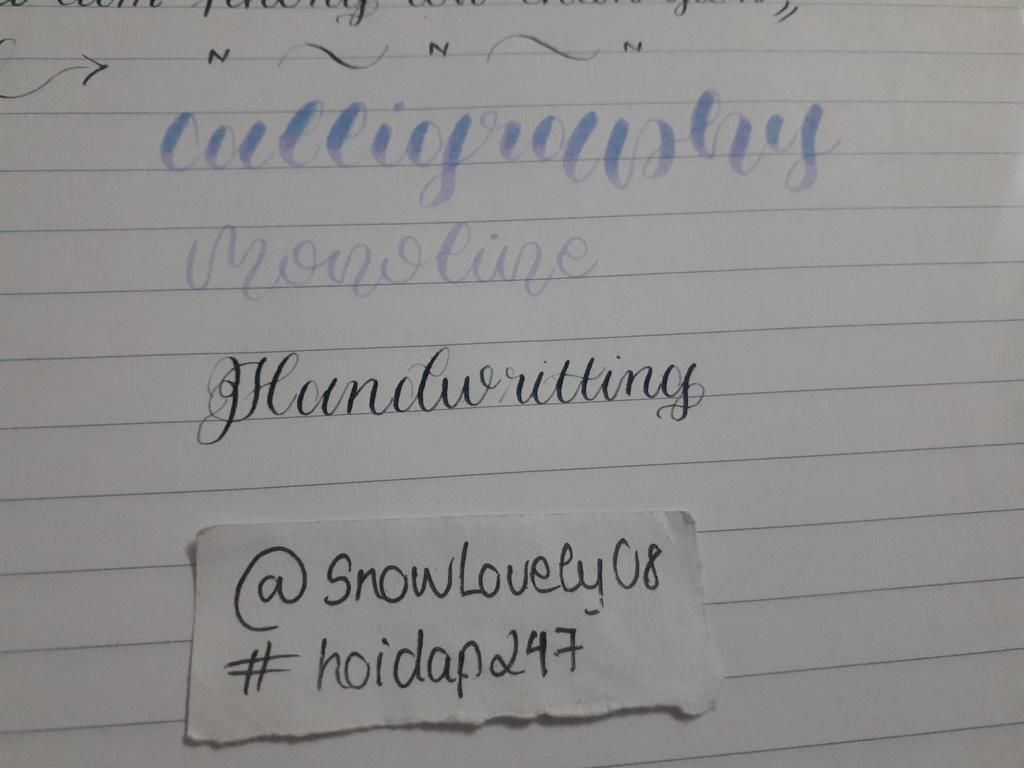 N ~ N ~ N
Calligraphy
Monoline
Handwritting
@SnowLovely08
#hoidap247